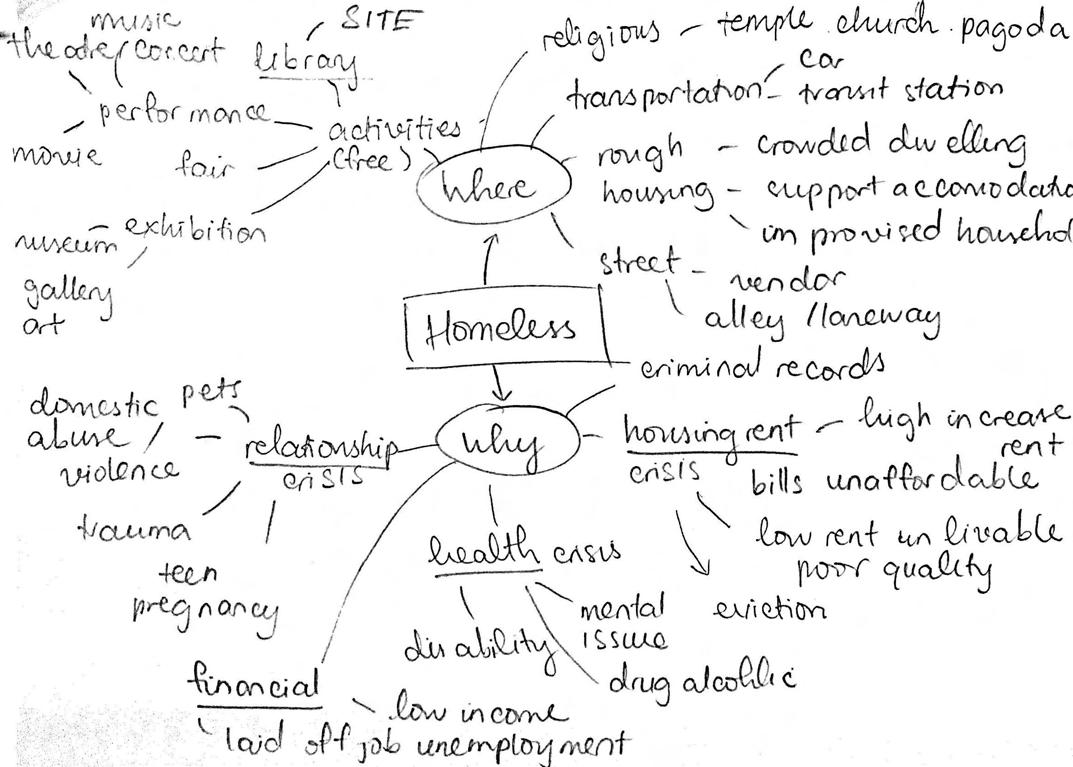 music
theatre/concert
library
SITE
performance
movie
fair
activities
(free)
exhibition
museum
gallery
art
religious - temple church. pagoda
transportation - car
transit station
rough - crowded dwelling
housing - support accomodatio
improvised househo
where
street - vendor
alley / laneway
Homeless
criminal records
why
housing rent - high increase
crisis
rent
bills unaffordable
low rent un livable
poor quality
eviction
domestic
abuse /
violence
pets
relationship
crisis
trauma
teen
pregnancy
health crisis
disability
mental
issue
drug alcohlic
financial
low income
laid off job unemployment